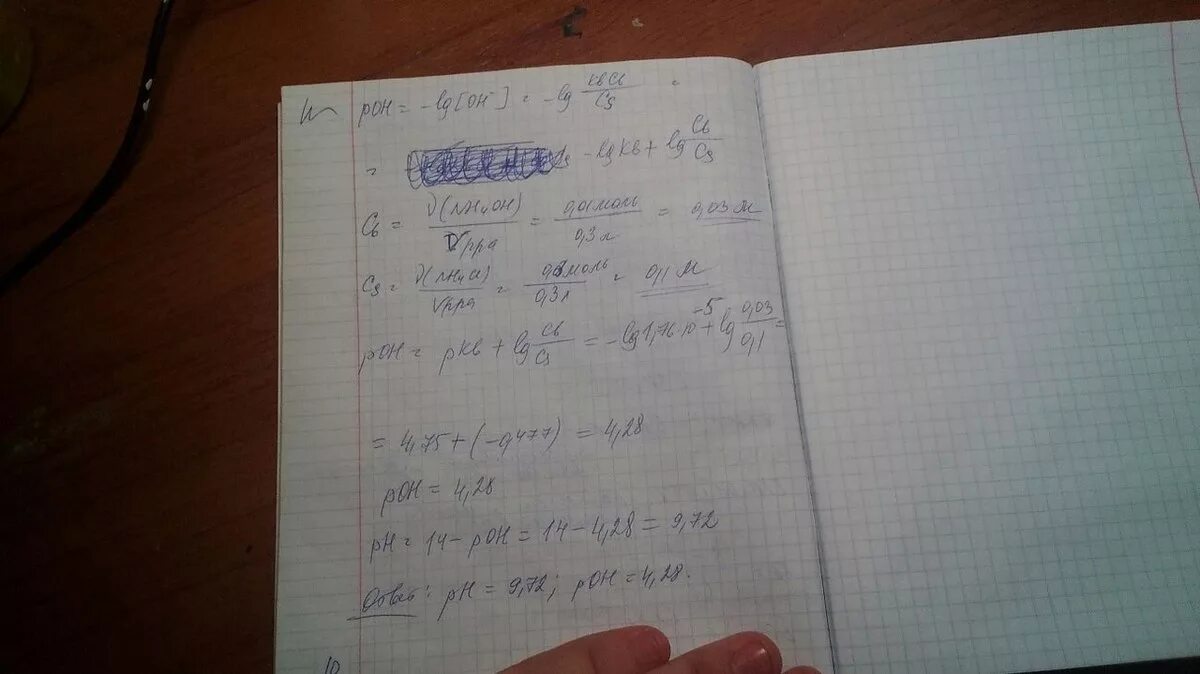 pOH = -lg[OH⁻] = -lg KвCв/Cs =
= -lgKв + lg Cв/Cs
Cв = ν(NH₄OH)/Vрра = 0,01моль/0,3 л = 0,03 М
Cs = ν(NH₄Cl)/Vрра = /0,3л = 0,1 М
pOH = pKв + lg Cв/Cs = -lg1,76·10⁻⁵ + lg 0,03/0,1 =
= 4,75 + (-0,477) = 4,28
pOH = 4,28
pH = 14 - pOH = 14 - 4,28 = 9,72
Ответ: pH = 9,72; pOH = 4,28.
10